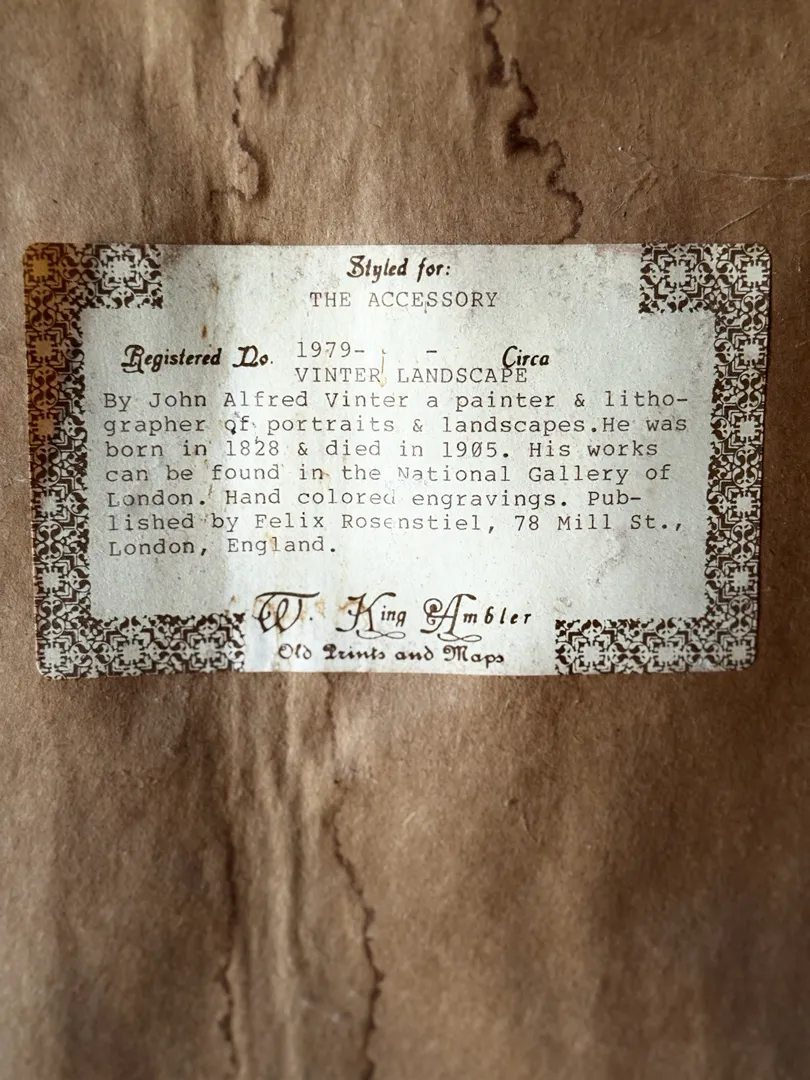 Styled for:
THE ACCESSORY
Registered No. 1979- - Circa
VINTER LANDSCAPE
By John Alfred Vinter a painter & litho-
grapher of portraits & landscapes.He was
born in 1828 & died in 1905. His works
can be found in the National Gallery of
London. Hand colored engravings. Pub-
lished by Felix Rosenstiel, 78 Mill St.,
London, England.
W. King Ambler
Old Prints and Maps